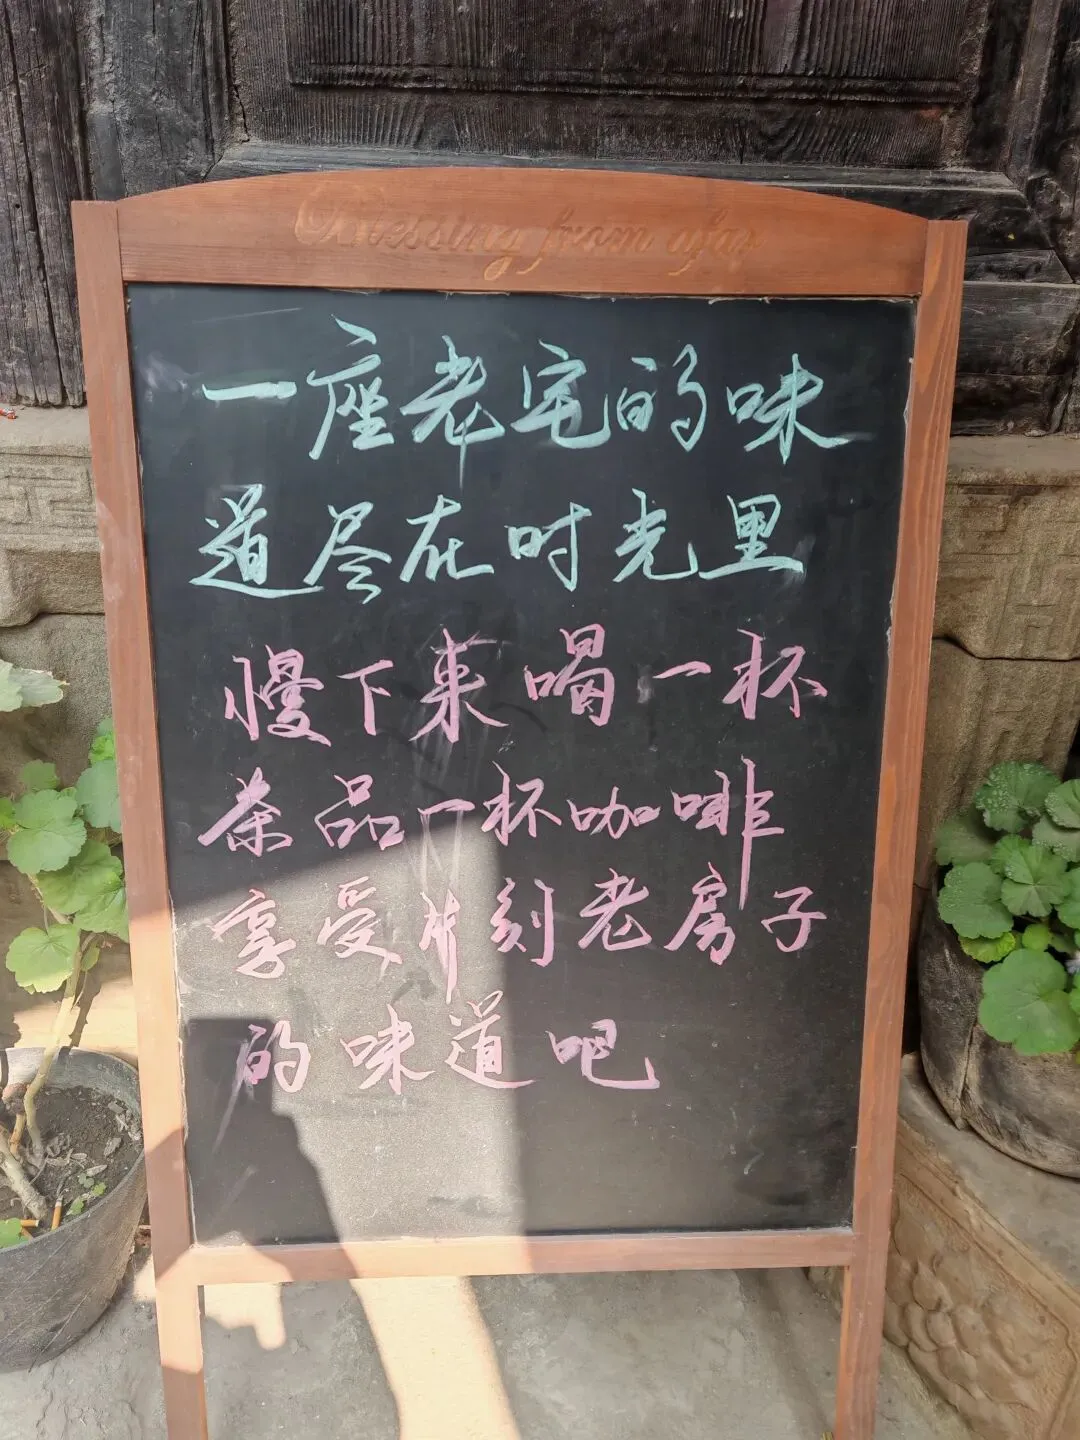 Blessing from afar
一座老宅的味
道尽在时光里
慢下来喝一杯
茶品一杯咖啡
享受片刻老房子
的味道吧